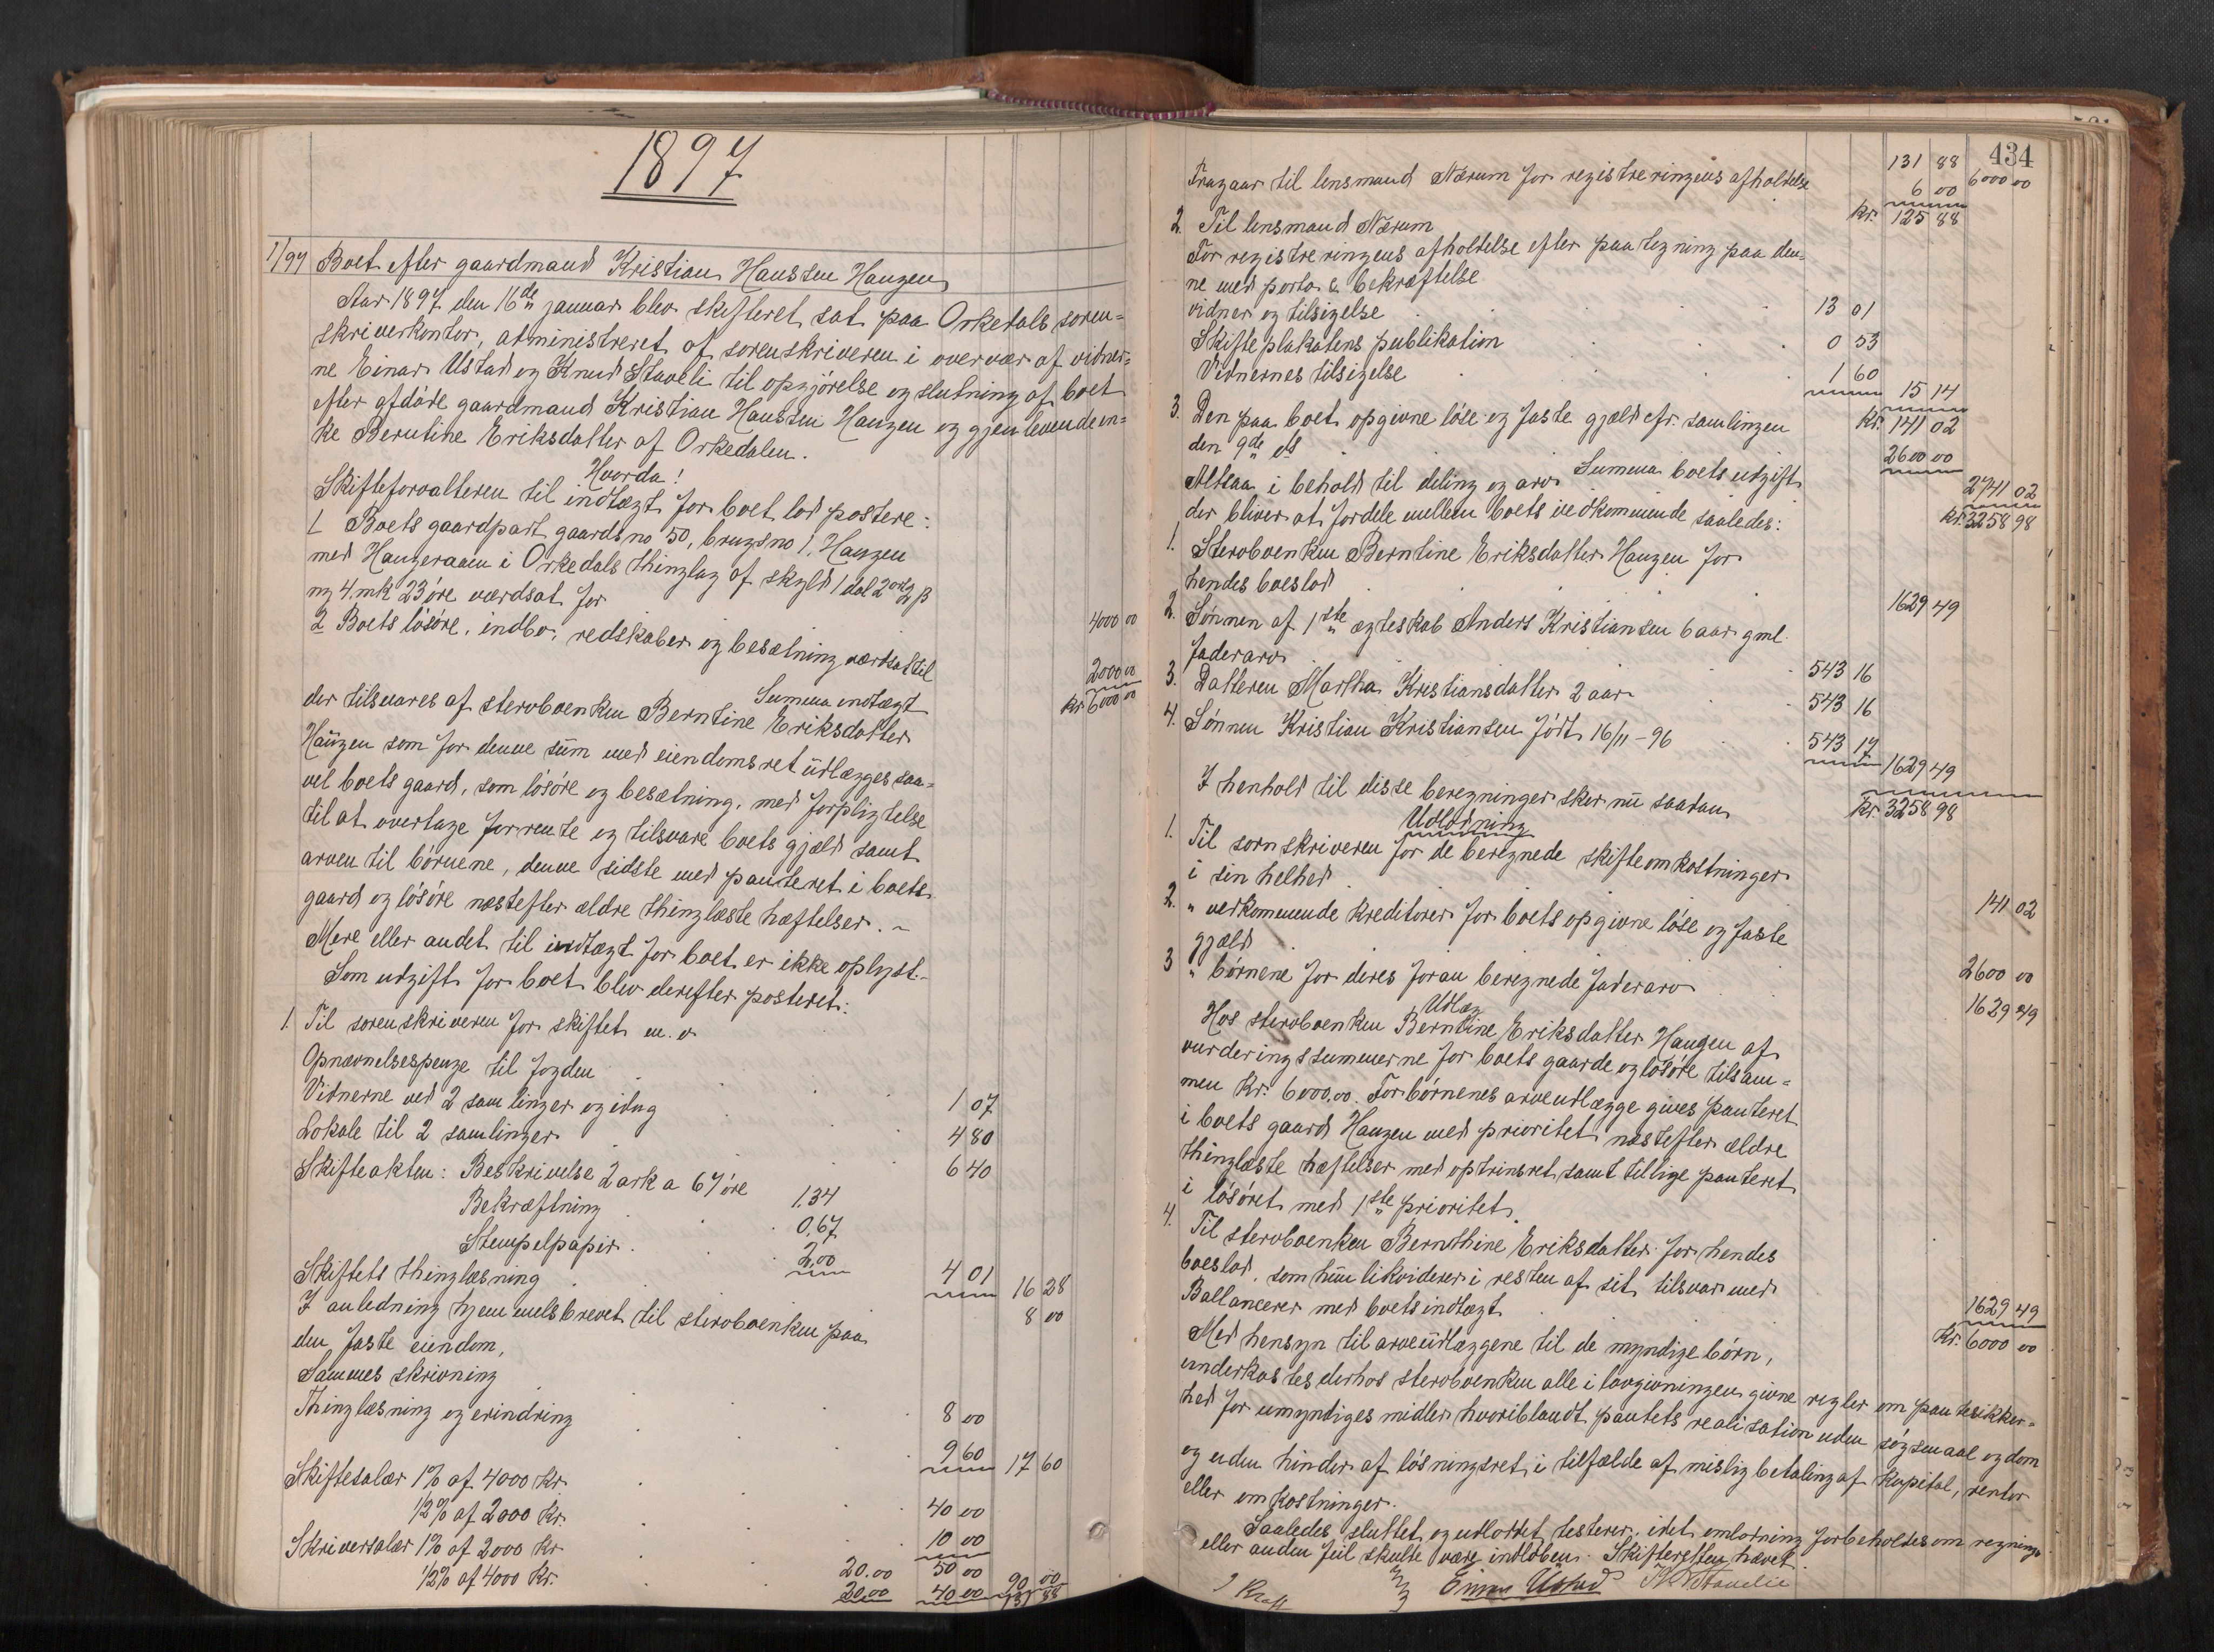 1897
1/97 Boet efter gaardmand Kristian Hansen Haugen
Aar 1897 den 16de januar blev skifteret sat paa Orkedals soren=
skriverkontor, administreret af sorenskriveren i overvær af vidner=
ne Einar Ustad og Knud Staveli til opgjörelse og slutning af boet
efter afdöde gaardmand Kristian Hansen Haugen og gjenlevende en=
ke Berntine Eriksdatter af Orkedalen.
Hvorda!
Skifteforvalteren til indtægt for boet lod postere:
1 Boets gaardpart gaards no 50, brugsno 1, Haugen
med Haugeraaen i Orkedals thinglag af skyld 1 dal 2 ort β
ny 4 mk 23 öre værdsat for 4000 00
2 Boets lösöre, indbo, redskaber og besætning værdsat til 2000 00
Summa indtægt kr 6000 00
der tilsvares af stervboenken Berntine Eriksdatter
Haugen som for denne sum med eiendomsret udlægges saa=
vel boets gaard, som lösöre og besætning, med forpligtelse
til at overtage forrente og tilsvare boets gjæld samt
arven til börnene, denne sidste med panteret i boets
gaard og lösöre næstefter ældre thinglæste hæftelser. ~
Mere eller andet til indtægt for boet er ikke oplyst.-
Som udgift for boet blev derefter posteret:
1. Til sorenskriveren for skiftet m. v.
Opnævnelsespenge til fogden 1 07
Vidnerne ved 2 samlinger og idag 4 80
Lokale til 2 samlinger 6 40
Skifteakten: Beskrivelse 2 ark a 67 öre 1,34
Bekræftning 0,67
Stempelpapir 2,00 4 01 16 28
Skiftets thinglæsning 8 00
I anledning hjemmelsbrevet til stervboenken paa
den faste eiendom,
Sammes skrivning 8 00
Thinglæsning og erindring 9 60 17 60
Skiftesalær 1% af 4000 kr. 40 00
1/2% af 2000 kr. 10 00 50 00
Skriversalær 1% af 2000 kr 20.00
1/2% af 4000 kr. 20.00 40 00 90 00
131 88
434
131 88 6000 00
Fragaar til lensmand Nærum for registreringens afholdelse 6 00
kr. 125 88
2. Til lensmand Nærum
For registreringens afholdelse efter paategning paa den=
ne med porto & bekræftelse
vidner og tilsigelse 13 01
Skifteplakatens publikation 0 53
Vidnernes tilsigelse 1 60 15 14
kr. 141 02
3. Den paa boet opgivne löse og faste gjæld cfr. samlingen
den 9de ds 2600 00
Summa boets udgift 2741 02
Altsaa i behold til deling og arv kr. 3258 98
der bliver at fordele mellem boets vedkommende saaledes:
1. Stervboenken Berntine Eriksdatter Haugen for
hendes boeslod 1629 49
2. Sönnen af 1ste ægteskab Anders Kristiansen 6 aar gml.
faderarv 543 16
3. Datteren Martha Kristiansdatter 2 aar 543 16
4. Sönnen Kristian Kristiansen födt 16/11-96 543 17 1629 49
kr. 3258 98
I henhold til disse beregninger sker nu saadan
Udlodning
1. Til sornskriveren for de beregnede skifteomkostninger
i sin helhed 141 02
2. " vedkommende kreditorer for boets opgivne löse og faste
gjæld 2600 00
3 " börnene for deres foran beregnede faderarv 1629 49
Udlæg
Hos stervboenken Berntine Eriksdatter Haugen af
vurderingssummerne for boets gaarde og lösöre tilsam=
men kr. 6000,00. For börnenes arveudlægge gives panteret
i boets gaard Haugen med prioritet næstefter ældre
thinglæste hæftelser med optrinsret samt tillige panteret
i lösöret med 1ste prioritet.
4. Til stervboenken Bernthine Eriksdatter for hendes
boeslod, som hun likviderer i resten af sit tilsvar med 1629 49
Ballancerer med boets indtægt kr. 6000 00
Med hensyn til arveudlæggene til de myndige börn,
underkastes derhos stervboenken alle i lovgivningen givne regler om pantesikker=
hed for umyndiges midler hvoriblandt pantets realisation uden sögsmaal og dom
og uden hinder af lösningsret i tilfælde af mislig betaling af kapital, renter
eller omkostninger.
Saaledes sluttet og udloddet testerer, idet omlodning forbeholdes om regnings
eller anden feil skulde være indlöben. Skifteretten hævet.
Kraft Einar Ustad K Stavelie